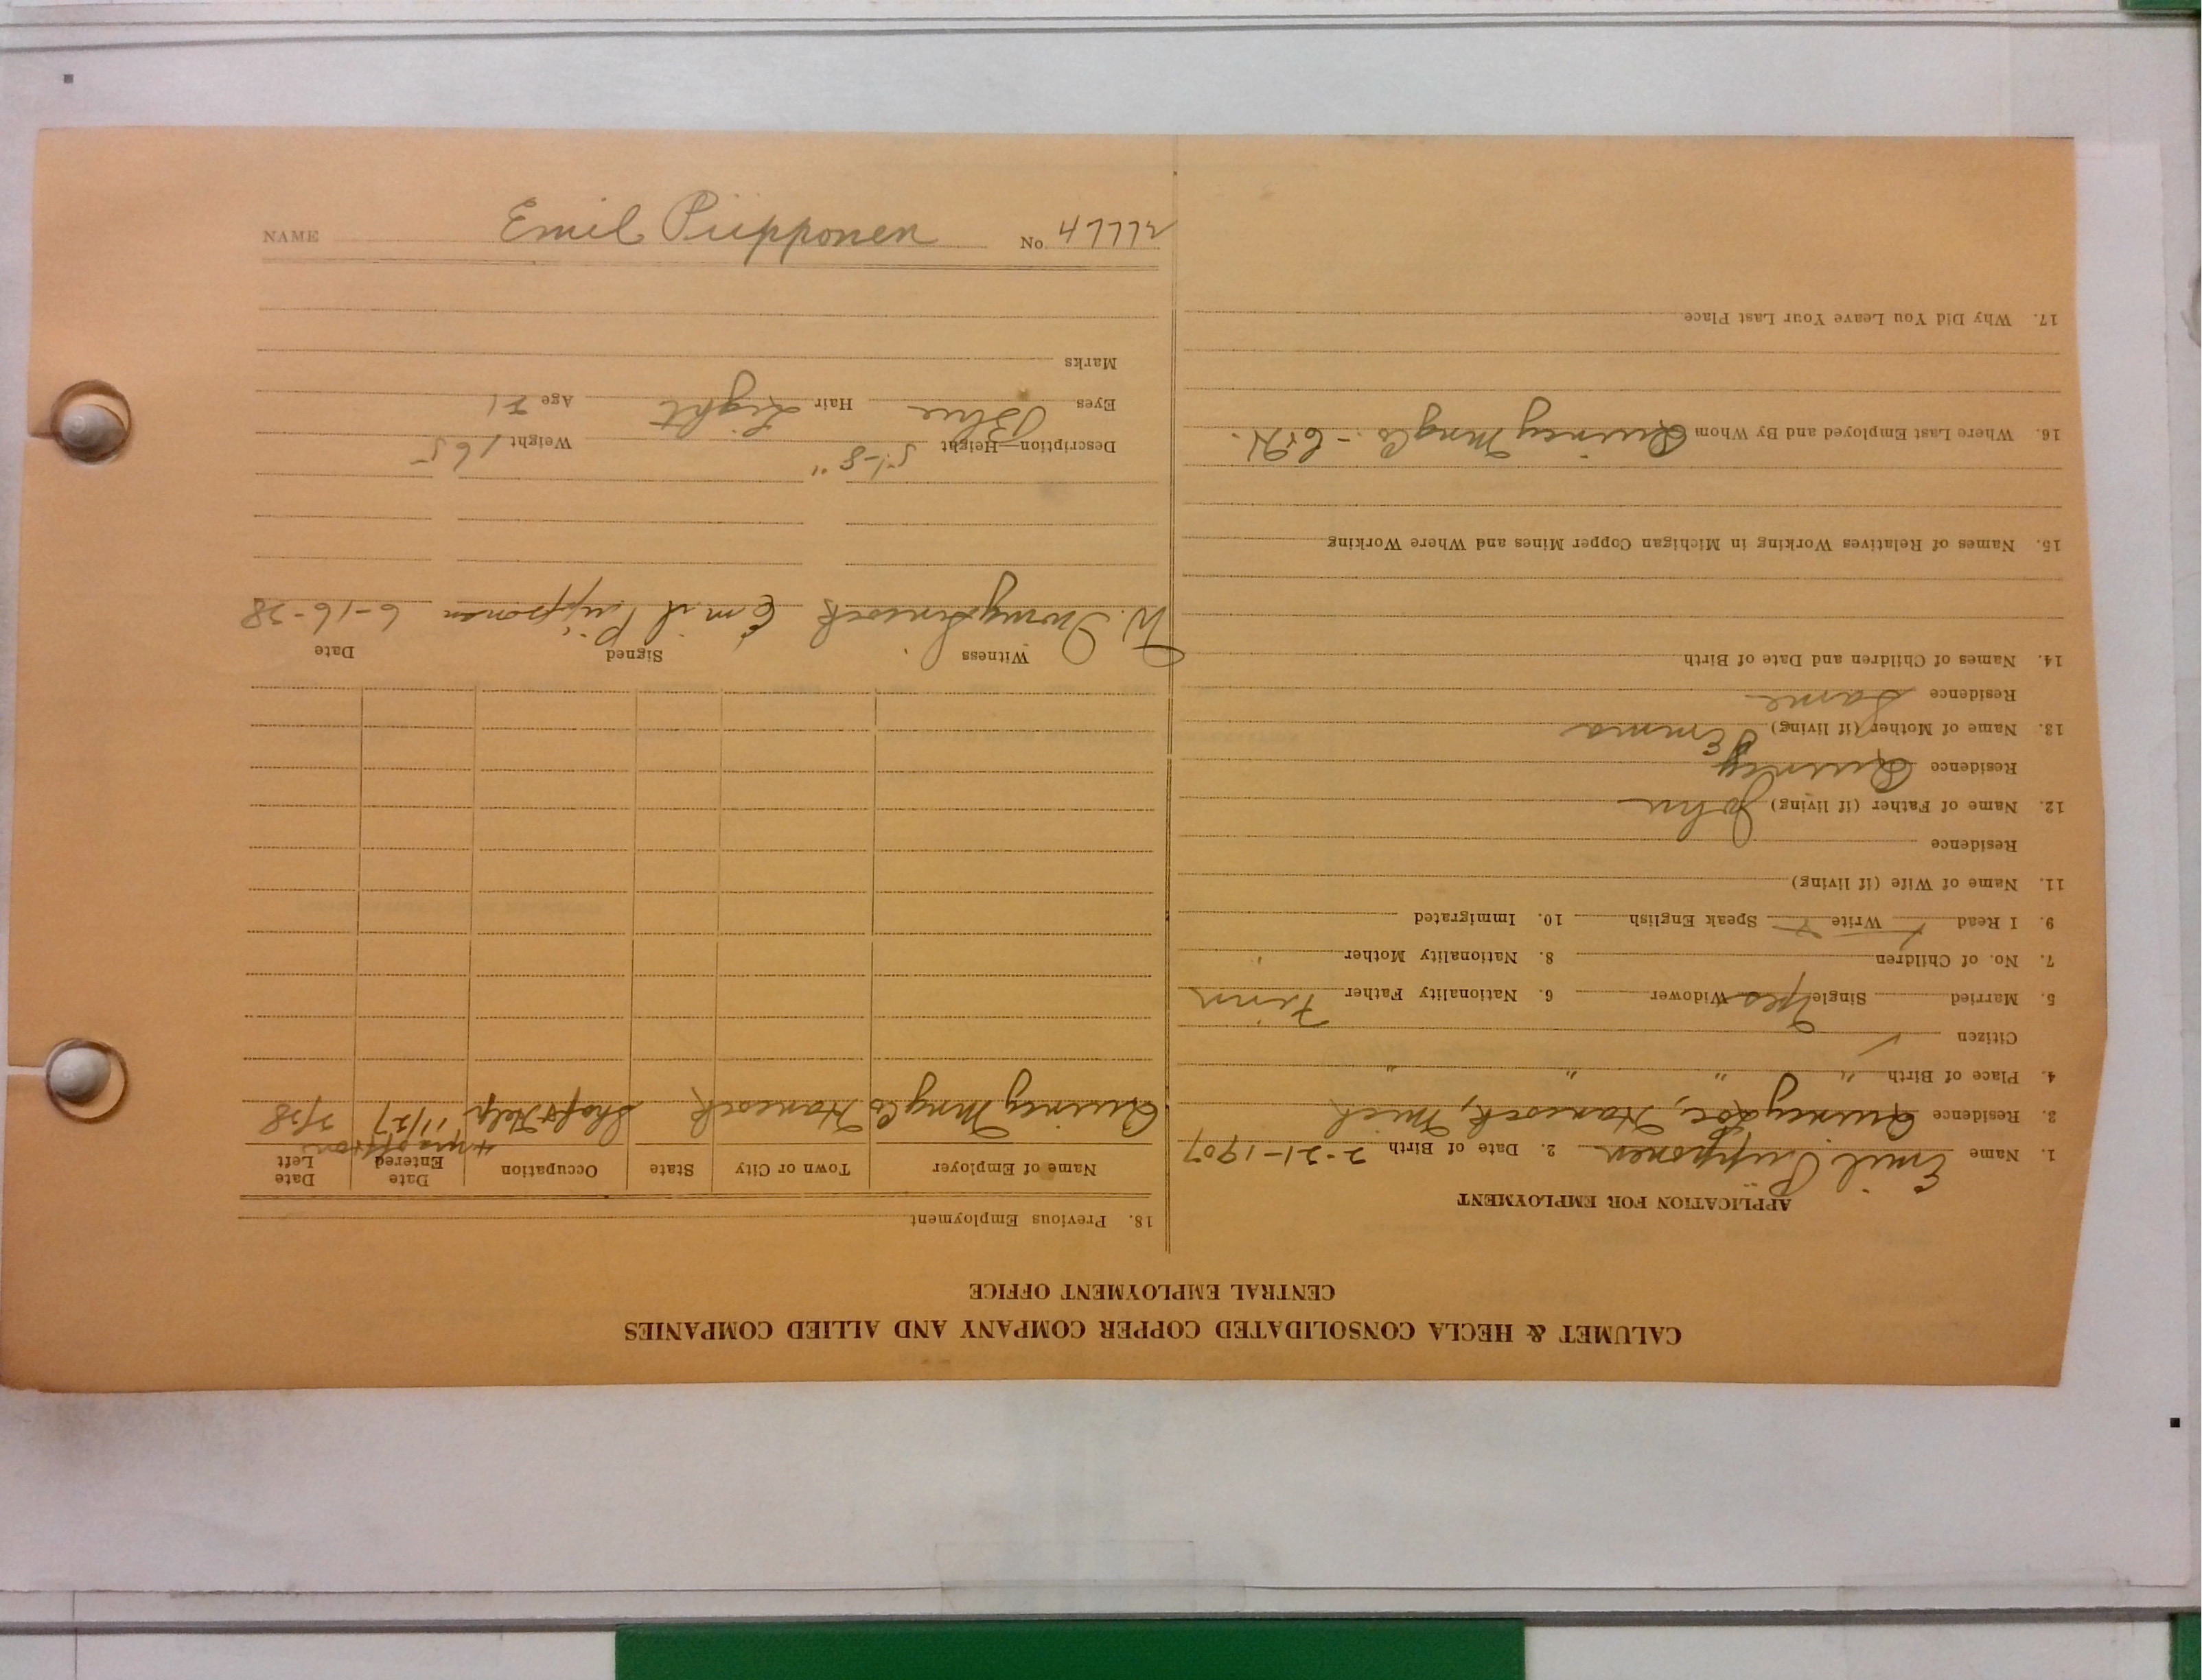 CALUMET & HECLA CONSOLIDATED COPPER COMPANY AND ALLIED COMPANIES
CENTRAL EMPLOYMENT OFFICE
APPLICATION FOR EMPLOYMENT
1. Name Emil Piipponen 2. Date of Birth 2-21-1907
3. Residence Quincy Loc, Hancock, Mich
4. Place of Birth " " " "
Citizen ✓
5. Married Single Yes Widower 6. Nationality Father Finn
7. No. of Children 8. Nationality Mother "
9. I Read Write Speak English 10. Immigrated
11. Name of Wife (if living)
Residence
12. Name of Father (if living) John
Residence Quincy
13. Name of Mother (if living) Emma
Residence Same
14. Names of Children and Date of Birth
15. Names of Relatives Working in Michigan Copper Mines and Where Working
16. Where Last Employed and By Whom Quincy Mng Co. -
17. Why Did You Leave Your Last Place
18. Previous Employment
Name of Employer Town or City State Occupation Date Entered Date Left
Quincy Mng Co Hancock Shaft Help 11/27 3/38
Witness Signed Date
W. Emil Piipponen 6-16-38
Description—Height 5'-8" Weight 165
Eyes Blue Hair Light Age 31
Marks
NAME Emil Piipponen No. 47772